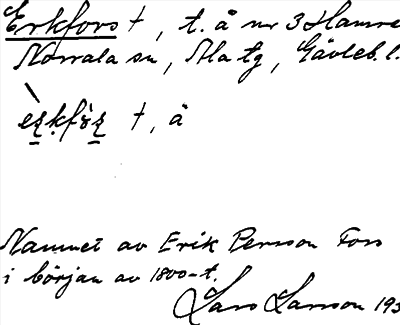 Erkfors t, t. å nr 3 Hamre
Norrala sn, Ala tg, Gävleb. l.
t, å
Namnet av Erik Persson Fors
i början av 1800-t.
Lars Larsson 193